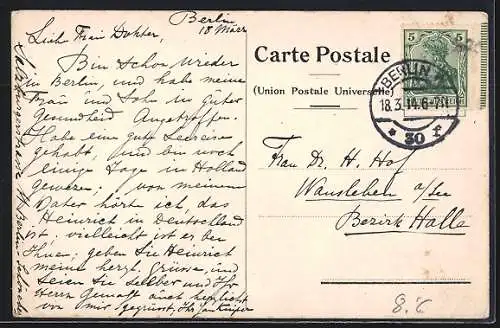 Berlin
18 März
Lieb Frau Doktor
Bin schon wieder
in Berlin, und habe meine
Frau und Sohn in guter
Gesundheit Angetroffen.
Habe eine gute Seereise
gehabt, und bin noch
einige Tage in Holland
gewesen; von meinem
Vater hörte ich, das
Heinrich in Deutschland
ist. vielleicht ist er bei
Ihnen; geben Sie Heinrich
meine herzl. Grüsse, und
seien Sie selber und Ihr
Herrn Gemahl auch herzlichst
von mir gegrüsst, Ihr
Carte Postale
(Union Postale Universelle)
5 5
BERLIN
18.3.14.6-7N
* 30 *
Frau Dr. H. Hof
Wansleben a/See
Bezirk Halle
8.-